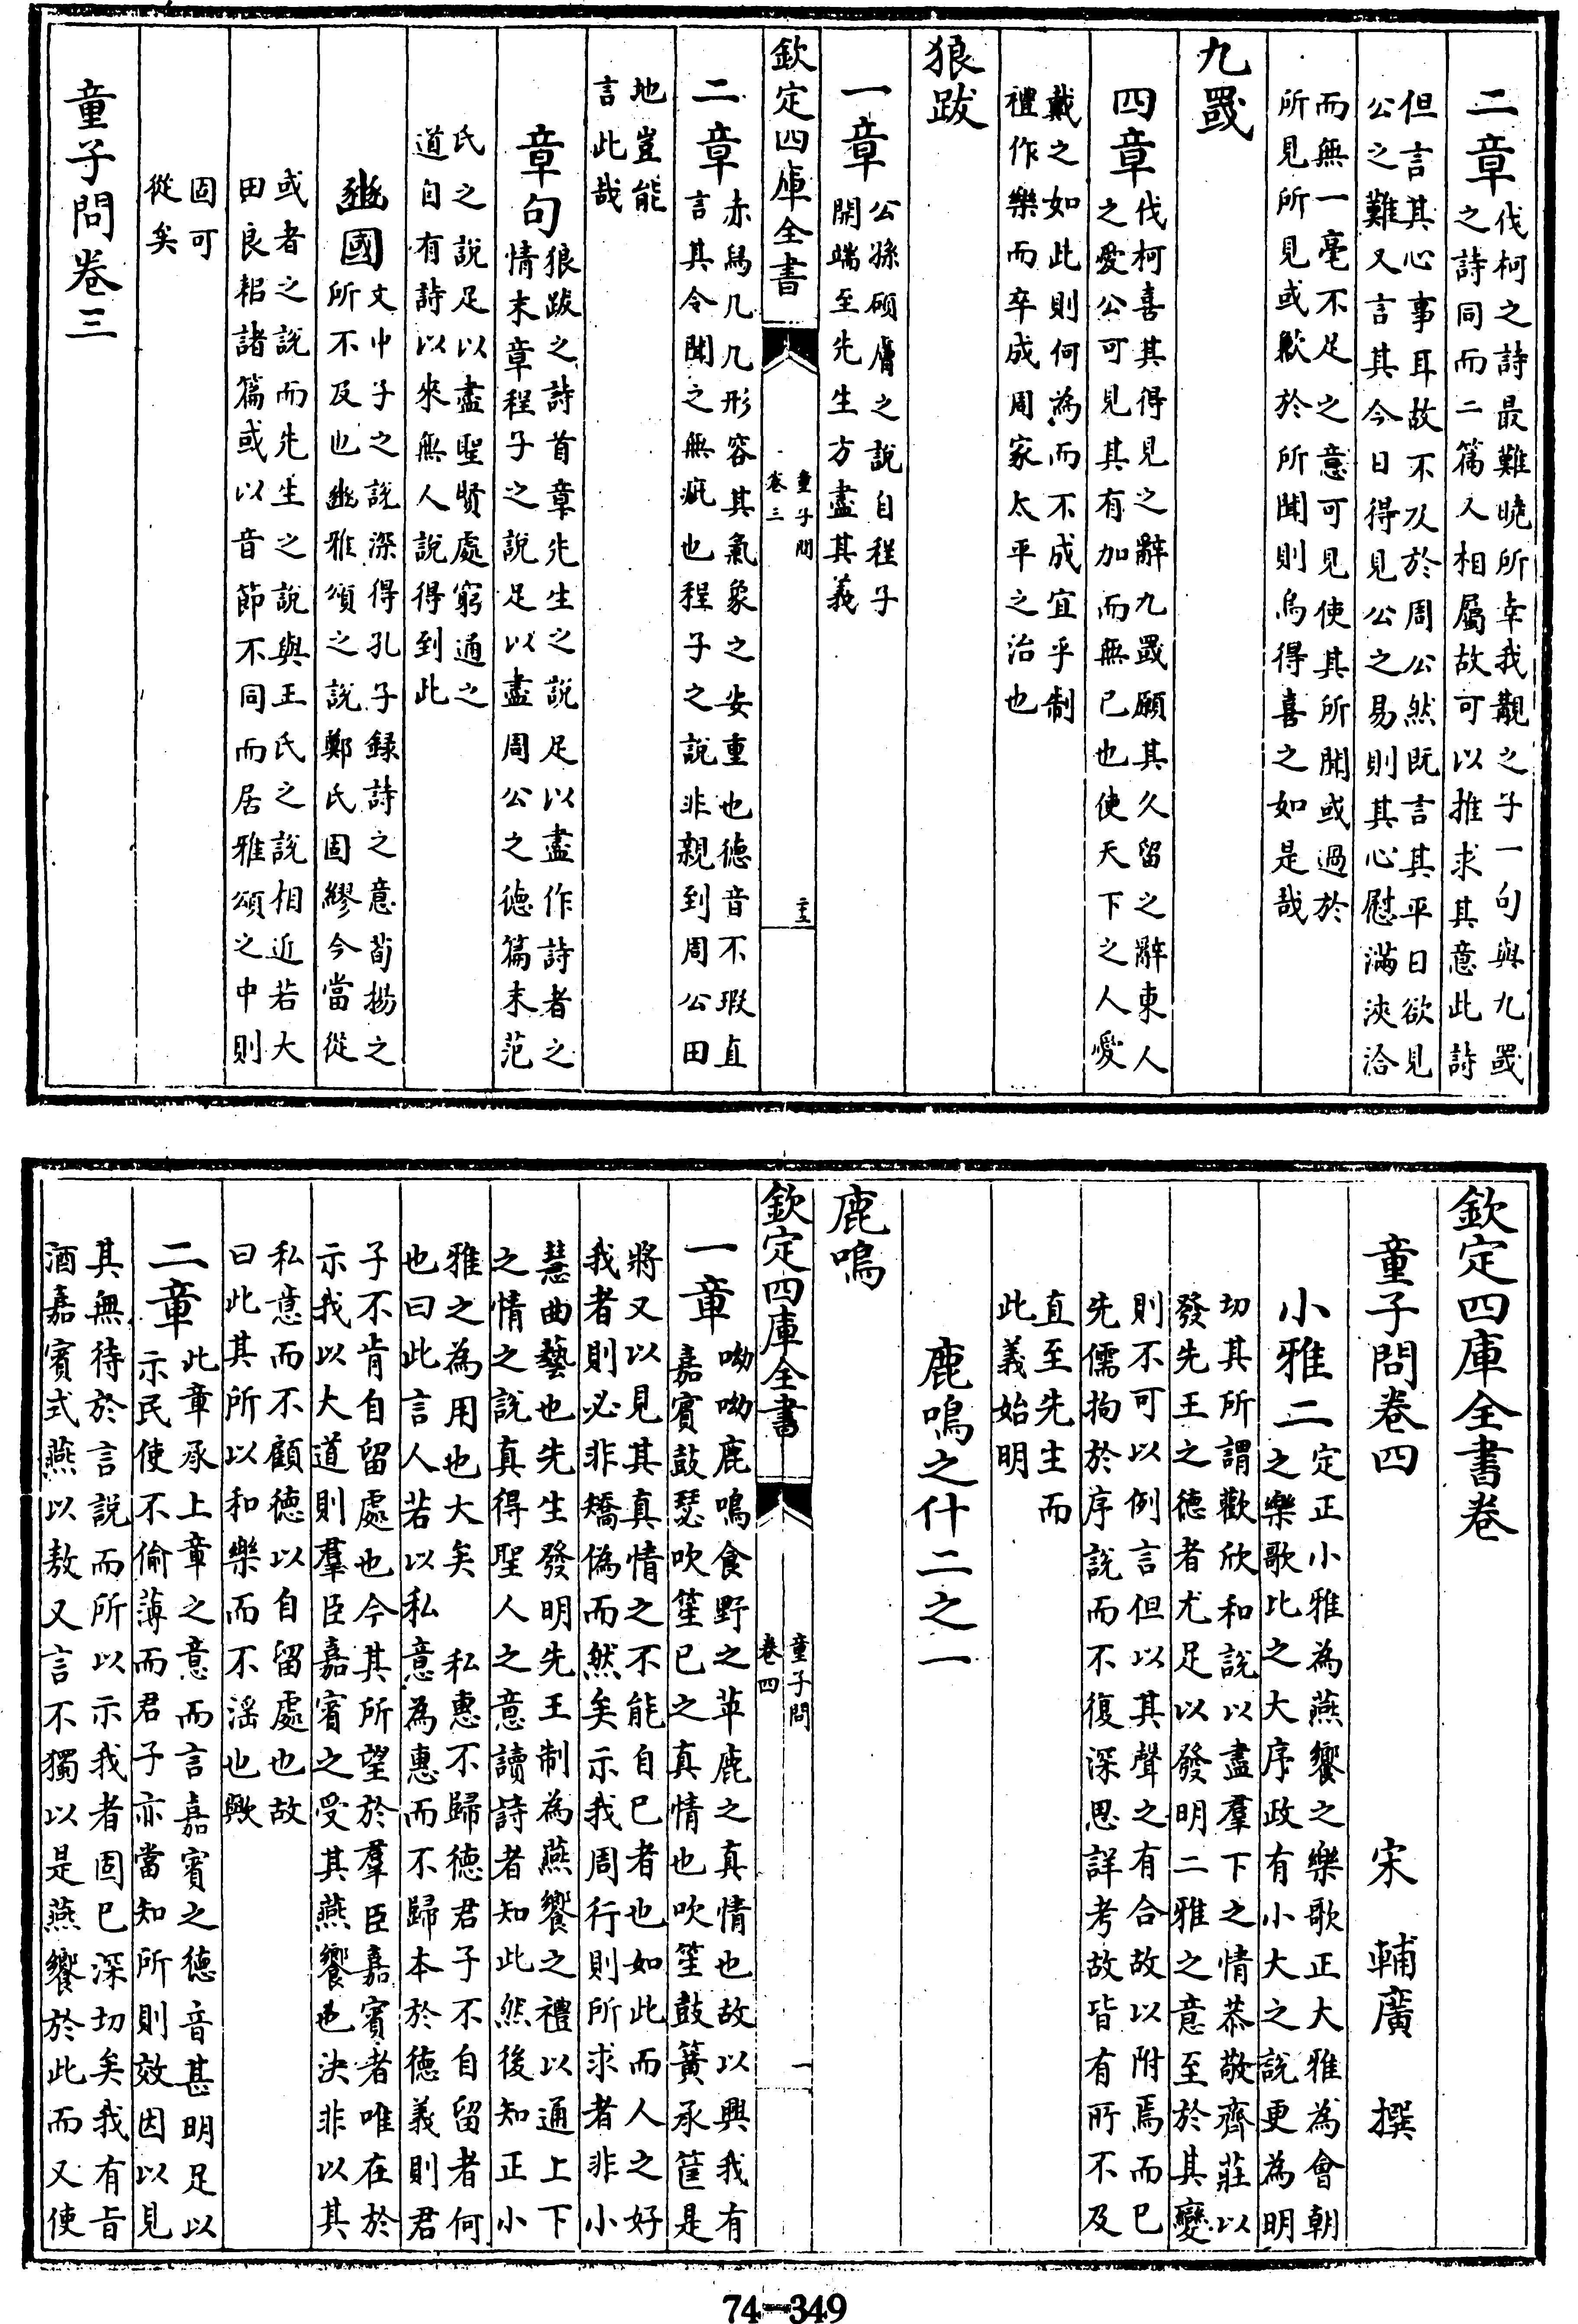 二章伐柯之詩最難曉所幸我覯之子一句與九罭
之詩同而二篇人相屬故可以推求其意此詩
但言其心事耳故不及於周公然既言其平日欲見
公之難又言其今日得見公之易則其心慰滿浹洽
而無一毫不足之意可見使其所聞或過於
所見所見或歉於所聞則烏得喜之如是哉
九罭
四章伐柯喜其得見之辭九罭願其久留之辭東人
之愛公可見其有加而無已也使天下之人愛
戴之如此則何為而不成宜乎制
禮作樂而卒成周家太平之治也
狼跋
一章公孫碩膚之說自程子
開端至先生方盡其義
欽定四庫全書
童子問
卷三
二章赤舄几几形容其氣象之安重也德音不瑕直
言其令聞之無疵也程子之說非親到周公田
地豈能
言此哉
章句狼跋之詩首章先生之說足以盡作詩者之
情末章程子之說足以盡周公之德篇末范
氏之說足以盡聖賢處窮通之
道自有詩以來無人說得到此
豳國文中子之說深得孔子録詩之意荀揚之
所不及也豳雅頌之說鄭氏固繆今當從
或者之說而先生之說與王氏之說相近若大
田良耜諸篇或以音節不同而居雅頌之中則
固可
從矣
童子問卷三
欽定四庫全書卷
童子問卷四
宋 輔廣 撰
小雅二定正小雅為燕饗之樂歌正大雅為會朝
之樂歌比之大序政有小大之說更為明
切其所謂歡欣和說以盡羣下之情恭敬齊莊以
發先王之德者尤足以發明二雅之意至於其變
則不可以例言但以其聲之有合故以附焉而已
先儒拘於序說而不復深思詳考故皆有所不及
直至先生而
此義始明
鹿鳴之什二之一
鹿鳴
欽定四庫全書
童子問
卷四
一
一章呦呦鹿鳴食野之苹鹿之真情也故以興我有
嘉賓鼓瑟吹笙已之真情也吹笙鼓簧承筐是
將又以見其真情之不能自已者也如此而人之好
我者則必非矯偽而然矣示我周行則所求者非小
慧曲藝也先生發明先王制為燕饗之禮以通上下
之情之說真得聖人之意讀詩者知此然後知正小
雅之為用也大矣 私惠不歸德君子不自留者何
也曰此言人若以私意為惠而不歸本於德義則君
子不肯自留處也今其所望於羣臣嘉賓者唯在於
示我以大道則羣臣嘉賓之受其燕饗也決非以其
私意而不顧德以自留處也故
曰此其所以和樂而不淫也歟
二章此章承上章之意而言嘉賓之德音甚明足以
示民使不偷薄而君子亦當知所則效因以見
其無待於言說而所以示我者固已深切矣我有旨
酒嘉賓式燕以敖又言不獨以是燕饗於此而又使
74-349